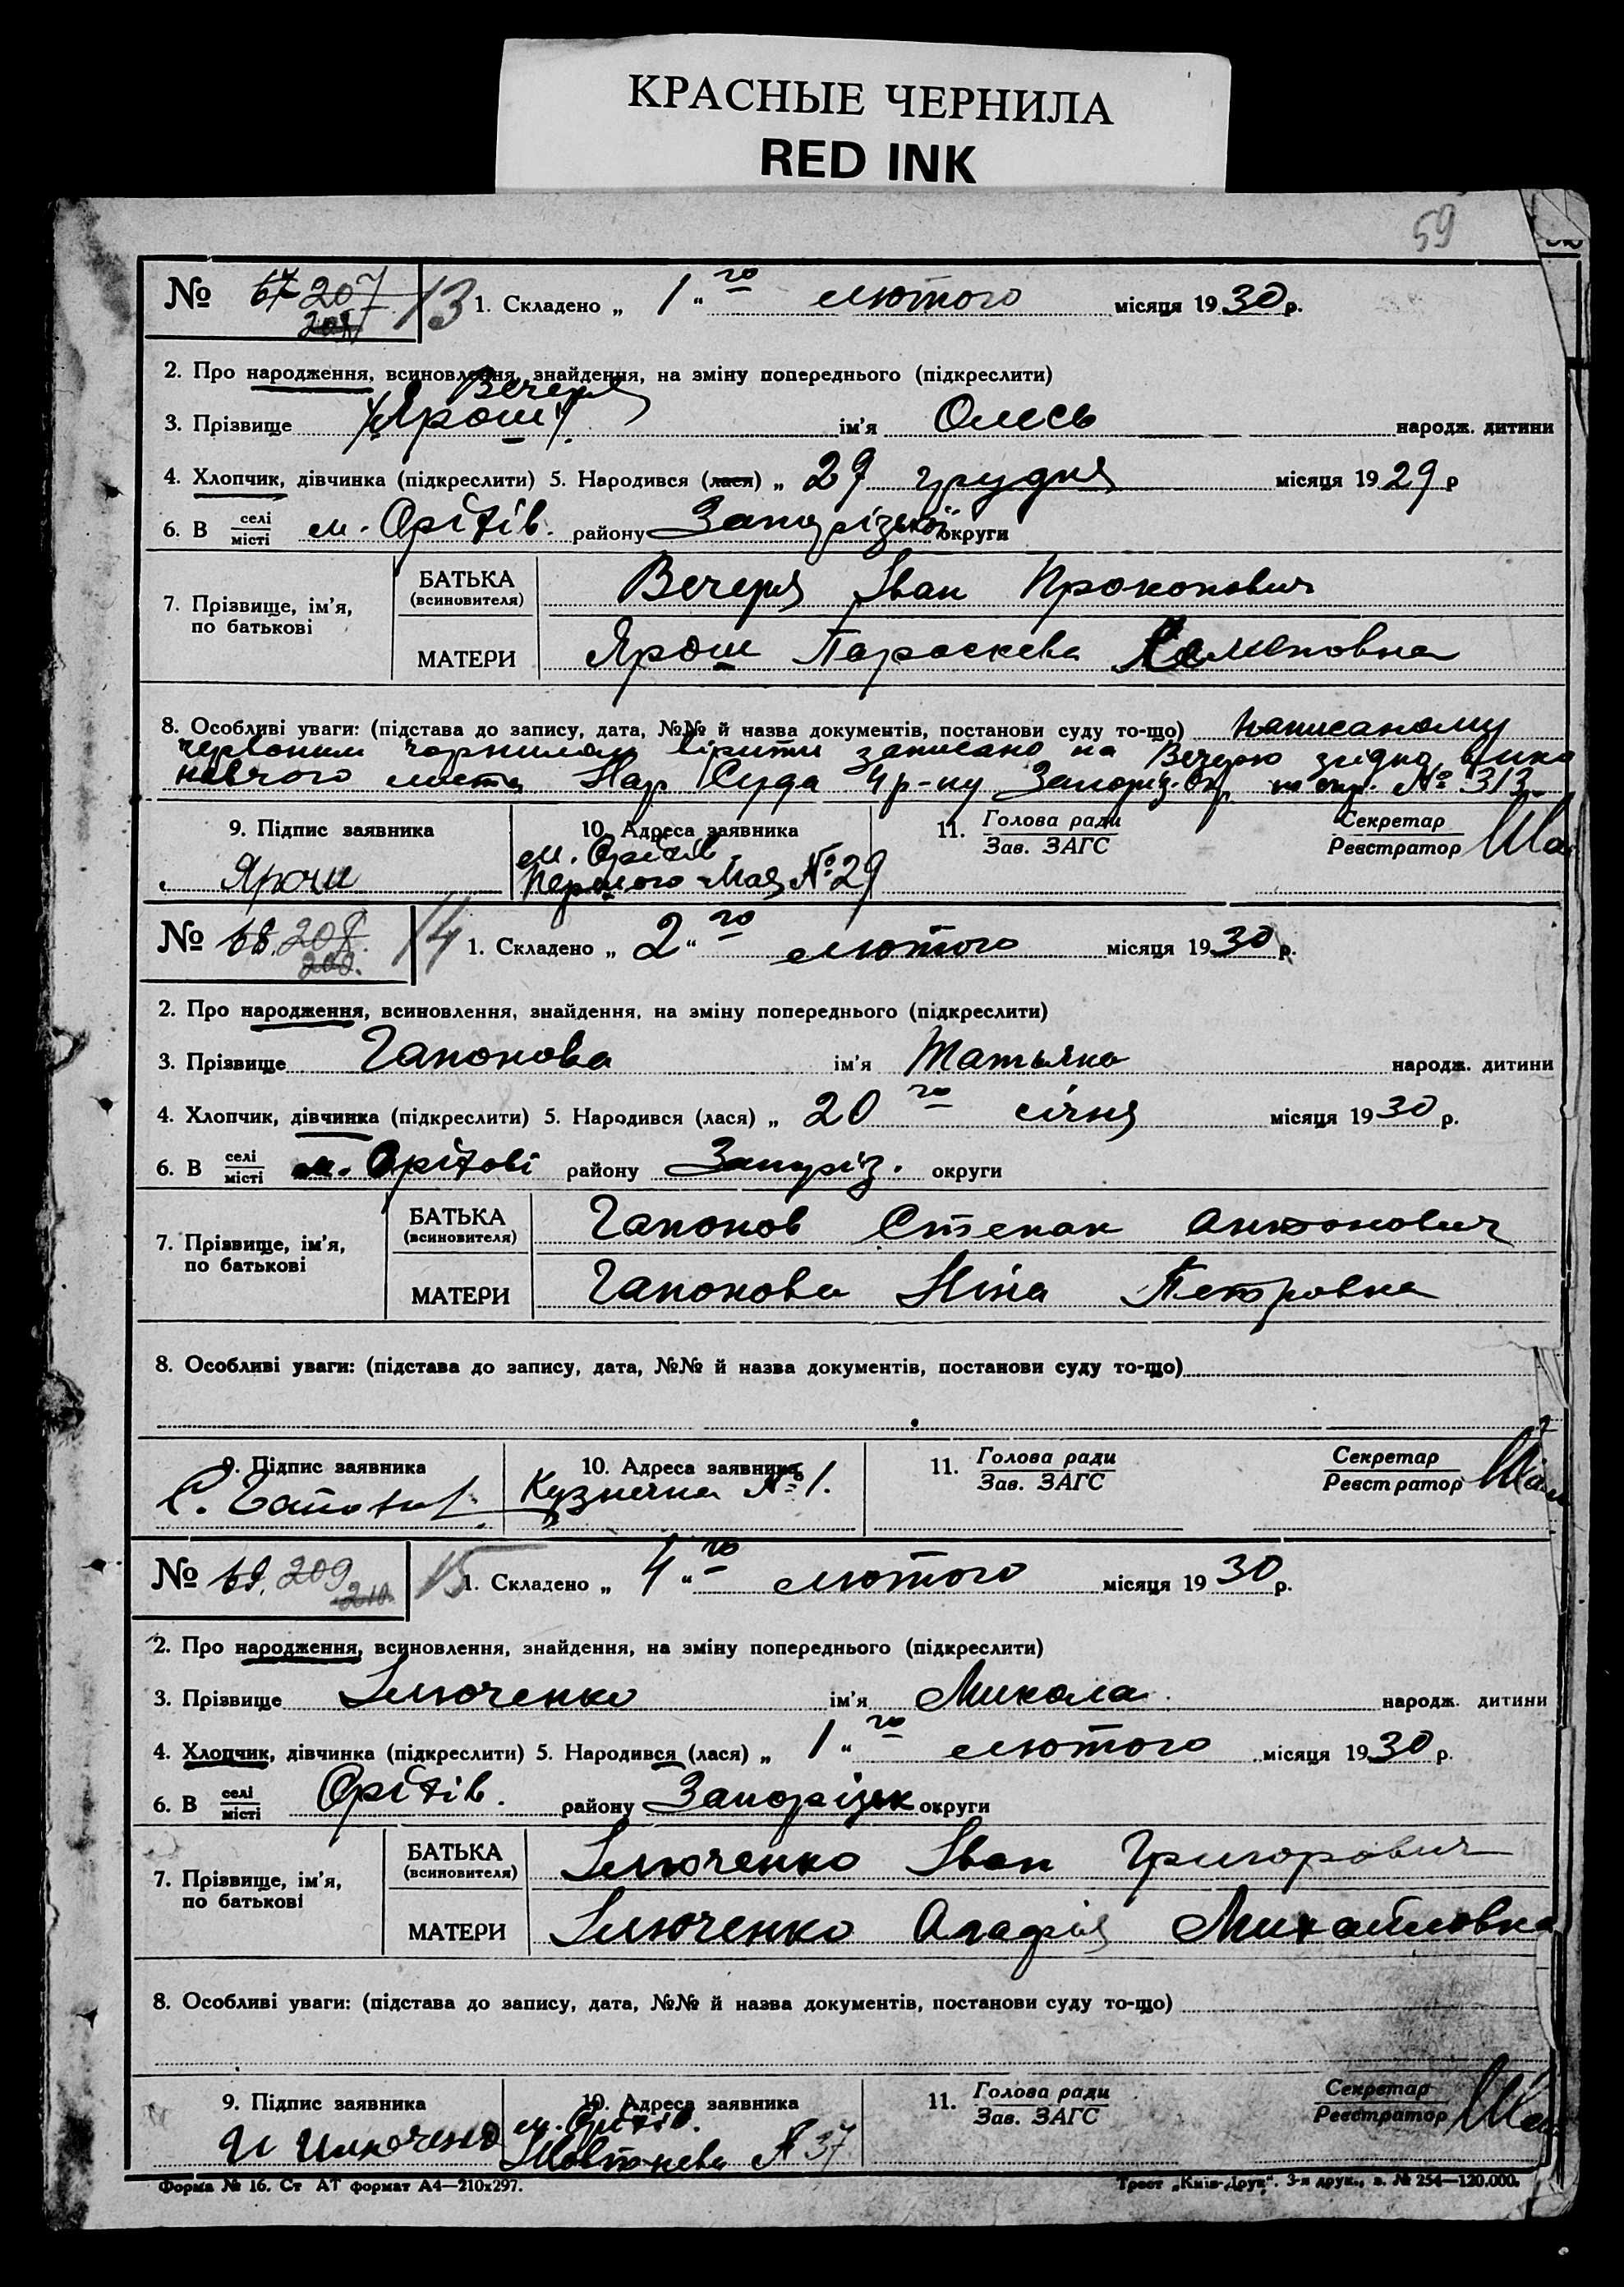 КРАСНЫЕ ЧЕРНИЛА
RED INK
59
№ 67 207 13 1. Складено „ 1 “ го лютого місяця 19 30 р.
2. Про народження, всиновлення, знайдення, на зміну попереднього (підкреслити)
Вечеря
3. Прізвище Ярош ім'я Олесь народж. дитини
4. Хлопчик, дівчинка (підкреслити) 5. Народився (лася) „ 29 грудня місяця 19 29 р
6. В селі місті м. Оріхів. району Запорізької округи
7. Прізвище, ім'я, по батькові
БАТЬКА (всиновителя) Вечеря Іван Прокопович
МАТЕРИ Ярош Параскева
8. Особливі уваги: (підстава до запису, дата, №№ й назва документів, постанови суду то-що) написаному
червоним чорнилом вірити записано на Вечерю згідно вико
навчого листа Нар Суда 4 р-ну Запоріз. Окр № 313
9. Підпис заявника 10. Адреса заявника 11. Голова ради Зав. ЗАГС Секретар Реєстратор
м. Оріхів
Ярош Першого Мая № 29
№ 68. 208. 14 1. Складено „ 2 “ го лютого місяця 19 30 р.
2. Про народження, всиновлення, знайдення, на зміну попереднього (підкреслити)
3. Прізвище Гапонова ім'я Татьяна народж. дитини
4. Хлопчик, дівчинка (підкреслити) 5. Народився (лася) „ 20 го січня місяця 19 30 р.
6. В селі місті м. Оріхові району Запоріз. округи
7. Прізвище, ім'я, по батькові
БАТЬКА (всиновителя) Гапонов Степан Антонович
МАТЕРИ Гапонова Ніна Петровна
8. Особливі уваги: (підстава до запису, дата, №№ й назва документів, постанови суду то-що)
9. Підпис заявника 10. Адреса заявника 11. Голова ради Зав. ЗАГС Секретар Реєстратор
С. Гапонов Кузнечна № 1.
№ 69. 209 210. 15 1. Складено „ 4 “ го лютого місяця 19 30 р.
2. Про народження, всиновлення, знайдення, на зміну попереднього (підкреслити)
3. Прізвище Ілюченко ім'я Микола народж. дитини
4. Хлопчик, дівчинка (підкреслити) 5. Народився (лася) „ 1 “ го лютого місяця 19 30 р.
6. В селі місті Оріхів. району Запорізьк округи
7. Прізвище, ім'я, по батькові
БАТЬКА (всиновителя) Ілюченко Іван Григорович
МАТЕРИ Ілюченко Агафія Михайловна
8. Особливі уваги: (підстава до запису, дата, №№ й назва документів, постанови суду то-що)
9. Підпис заявника 10. Адреса заявника 11. Голова ради Зав. ЗАГС Секретар Реєстратор
м. Оріхів.
И Илюченко № 37
Форма № 16. Ст АТ формат А4—210х297. Трест „Київ-Друк“. 3-я друк., з. № 254—120.000.